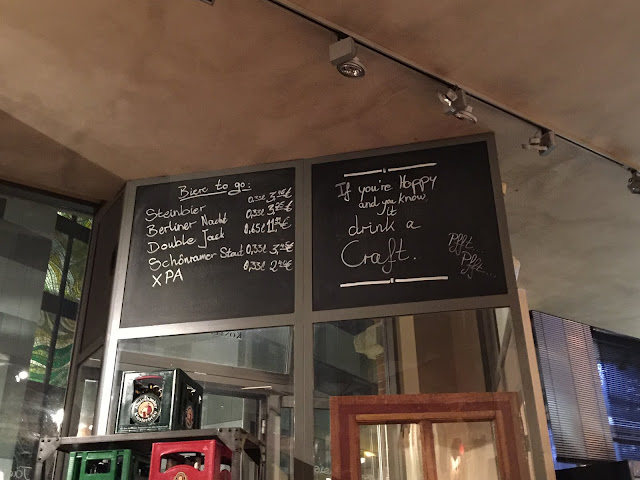 Biere to go:
Steinbier 0,33l
Berliner Nacht 0,33l
Double Jack 0,65l
Schönramer Stout 0,33l
XPA 0,33l
If you're Hoppy
and you know
it
drink a
Craft.
Pfft
Pfft...